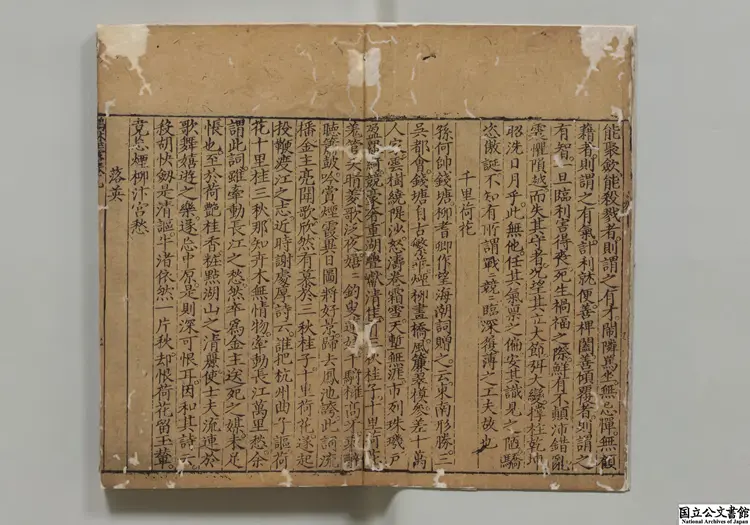 能聚斂能殺戮者則謂之有才閙隣罵坐無忌憚無顧
藉者則謂之有氣計利就便善捭闔善傾覆者則謂之
有智一旦臨利害得喪死生禍福之際鮮有不顛沛錯亂
震懼隕越而失其守者况望其立大節弭大變撑柱乾坤
昭洗日月乎此無他任其氣稟之偏安其識見之陋驕
恣傲誕不知有所謂戰〻兢〻臨深履薄之工夫故也
千里荷花
孫何帥錢塘柳耆卿作望海潮詞贈之云東南形勝三
吳都會錢塘自古繁華煙柳畫橋風簾翠模參差十萬
人家雲樹繞隄沙怒濤卷霜雪天塹無涯市列珠璣戶
盈競豪奢重湖疊巘清佳秋桂子十里荷
晴菱歌泛夜嬉〻釣叟騎擁高牙乘醉
聽簫鼓吟賞煙霞異日圖將好景歸去鳳池誇此詞流
播金主亮聞歌欣然有慕於三秋桂子十里荷花遂起
投鞭渡江之志近時謝處厚詩云誰把杭州曲子謳荷
花十里桂三秋那知卉木無情物牽動長江萬里愁余
謂此詞雖牽動長江之愁然卒為金主送死之媒未足
恨也至於荷艷桂香粧點湖山之清麗使士夫流連於
歌舞嬉遊之樂遂忘中原是則深可恨耳因和其詩云
殺胡快劒是清謳牛渚依然一片秋却恨荷花留玉輦
竟忘煙柳汴宮愁
落英
国立公文書館
National Archives of Japan